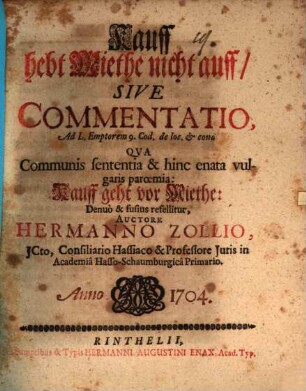 Kauff 19.
hebt Miethe nicht auff/
SIVE
COMMENTATIO,
Ad L. Emptorem 9. Cod. de loc. & cond.
QVA
Communis sententia & hinc enata vul-
garis parœmia:
Kauff geht vor Miethe:
Denuò & fusius refellitur,
AUCTORE
HERMANNO ZOLLIO,
JCto, Consiliario Hassiaco & Professore Juris in
Academiâ Hasso-Schaumburgicâ Primario.
Anno 1704.
RINTHELII,
Sumptibus & Typis HERMANNI AUGUSTINI ENAX, Acad. Typ.